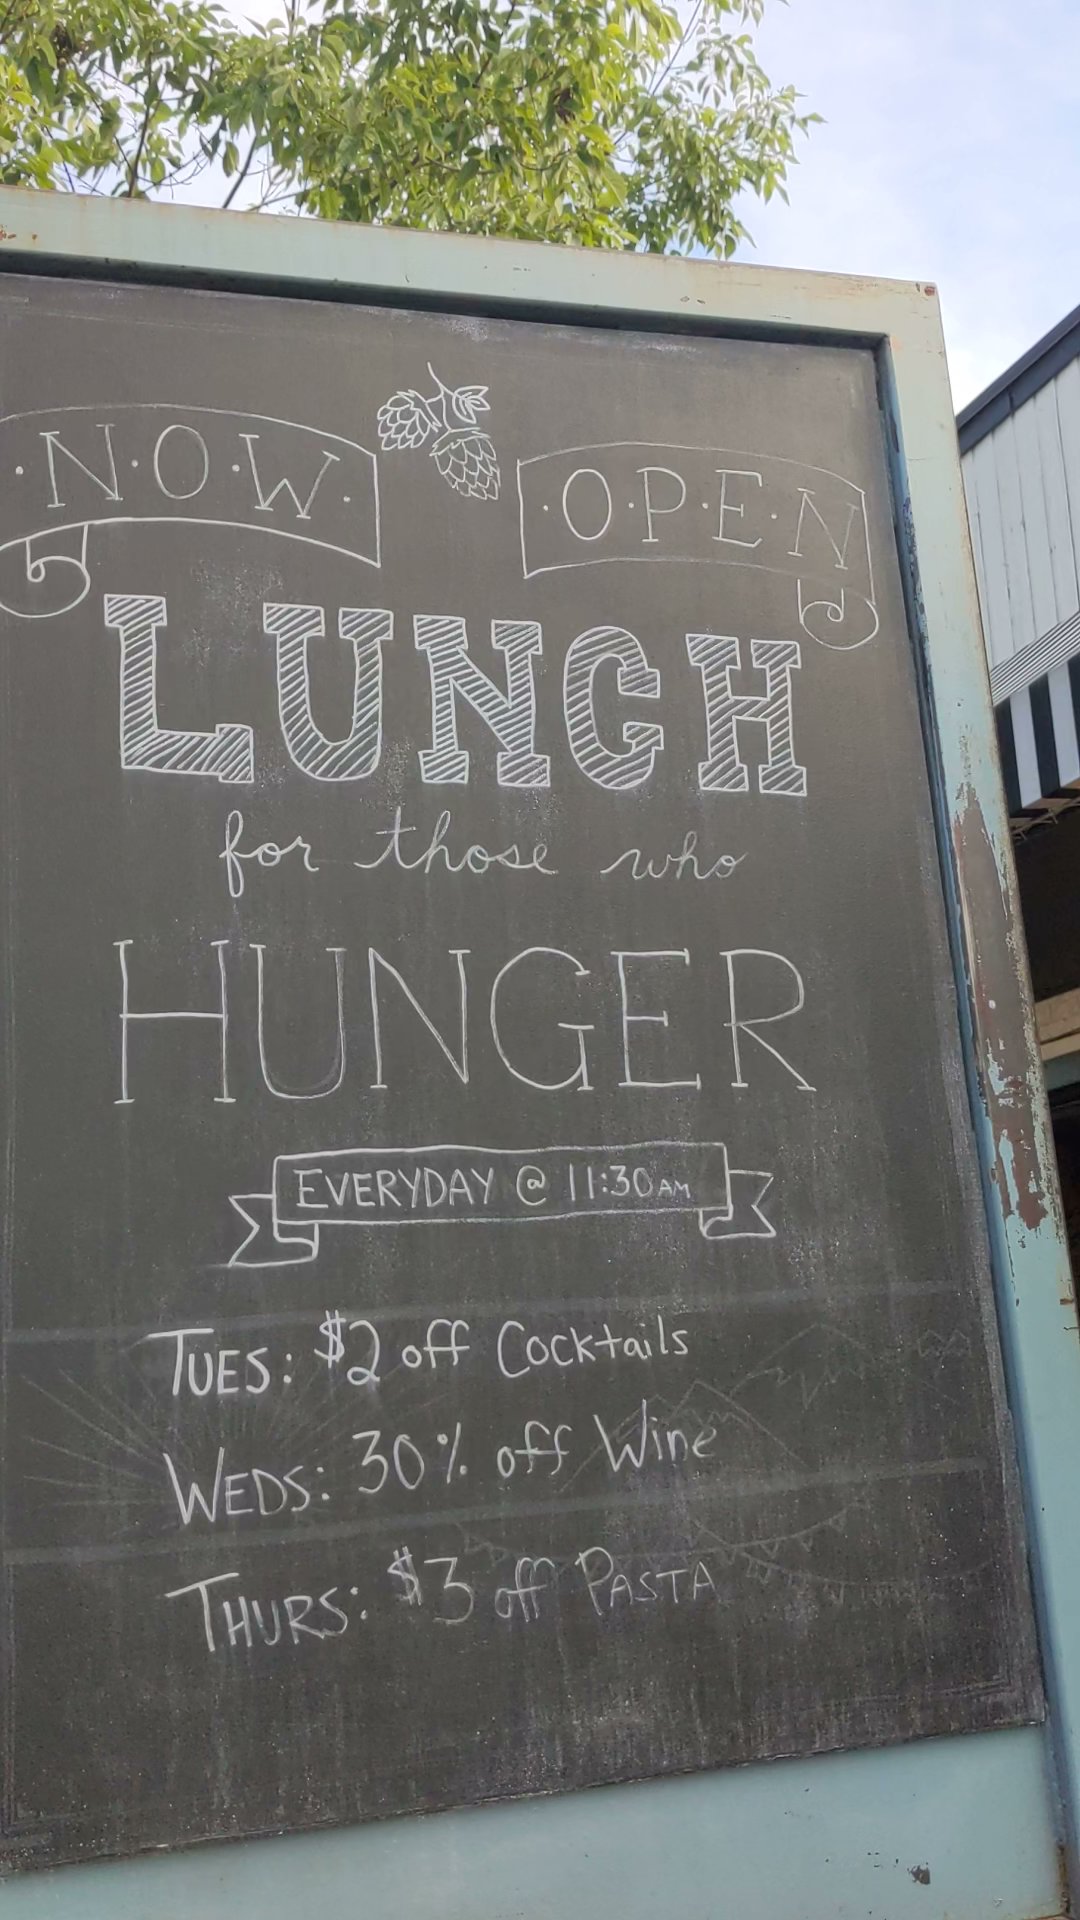 ·N·O·W· ·O·P·E·N
LUNCH
for those who
HUNGER
EVERYDAY @ 11:30AM
TUES: $2 off Cocktails
WEDS: 30% off Wine
THURS: $3 off PASTA